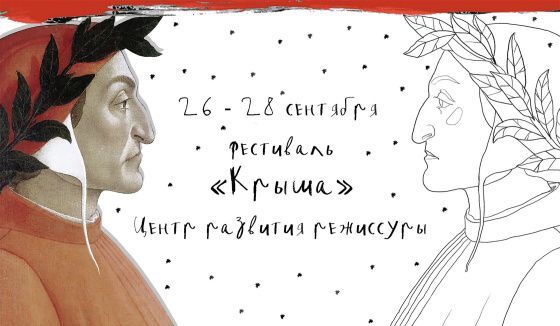 26 - 28 сентября
фестиваль
«Крыша»
Центр развития режиссуры